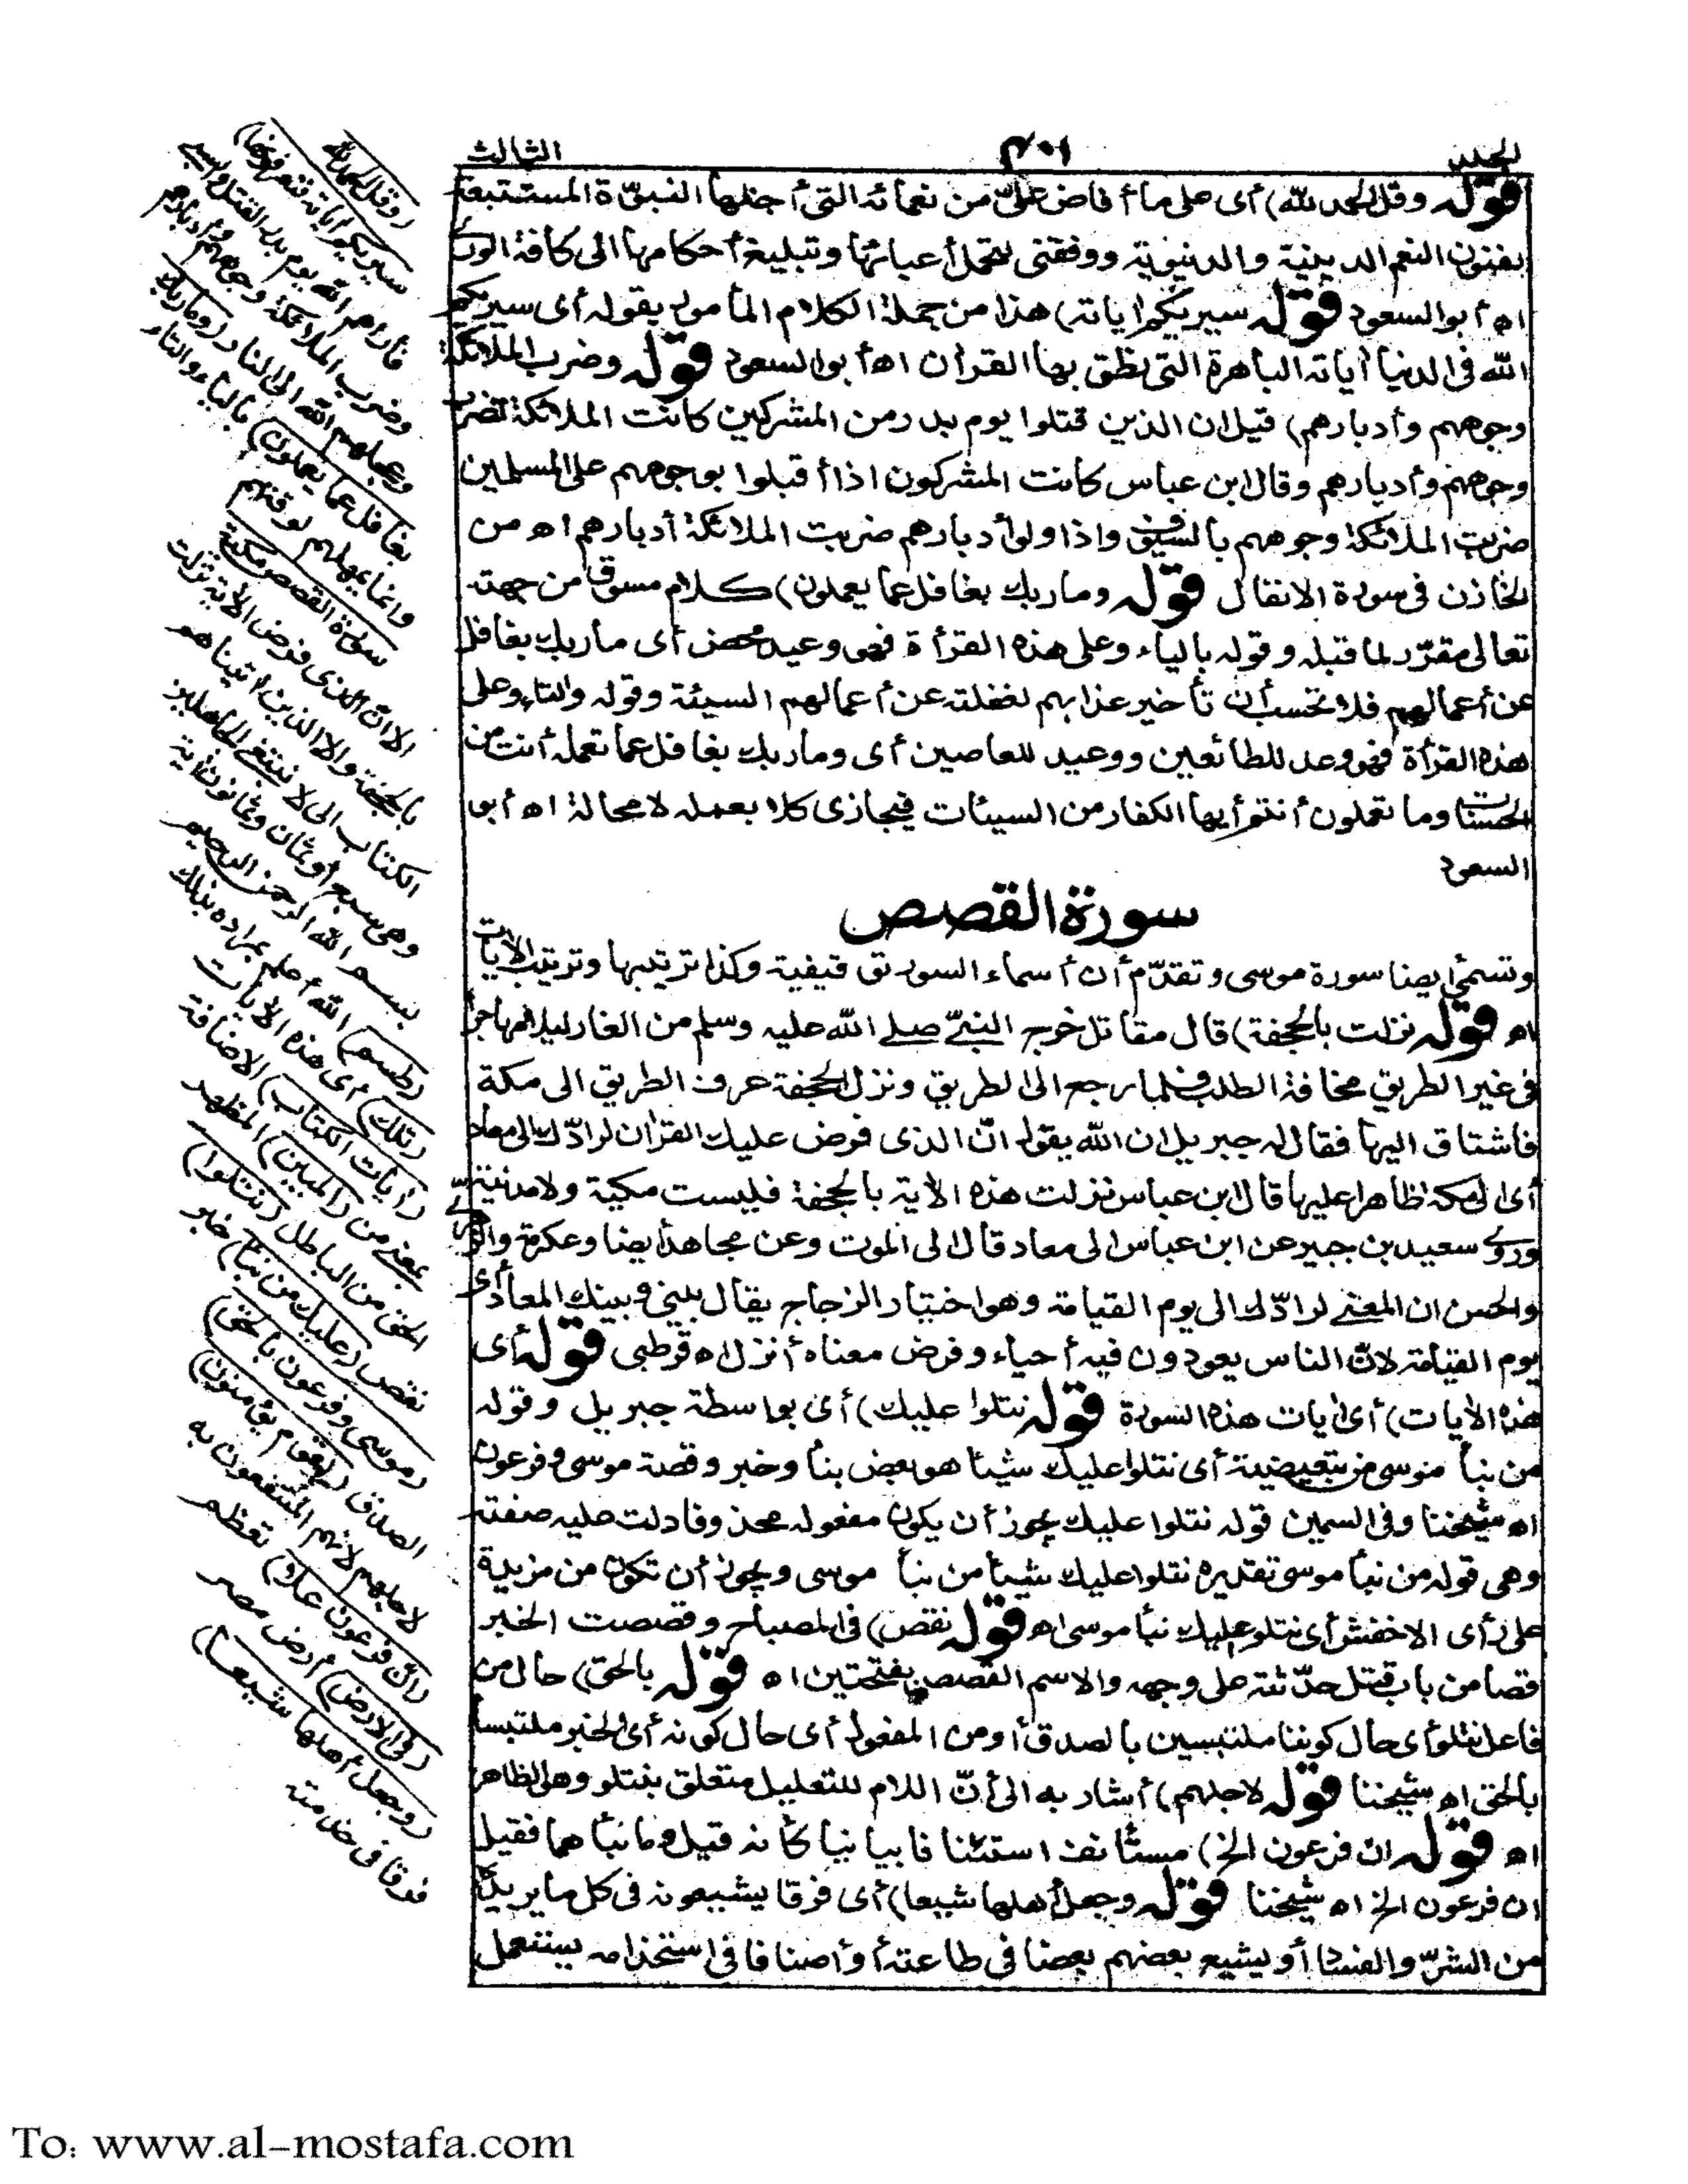 الجلد
٤٠١
الثالث
قوله وقل الحمد لله) أى على ما أفاض علىّ من نعمائه التى أجلها النبوّة المستتبعة
بفنون النعم الدينية والدنيوية ووفقنى لتحمل أعبائها وتبليغ أحكامها الى كافة الورى
اه أبو السعود قوله سيريكم اياته) هذا من جملة الكلام المأمور بقوله أى سيريكم
الله فى الدنيا أياته الباهرة التى نطق بها القرأن اه أبو السعود قوله وضرب الملائكة
وجوههم وأدبارهم) قيل ان الذين قتلوا يوم بدر من المشركين كانت الملائكة تضرب
وجوههم وأدبارهم وقال ابن عباس كانت المشركون اذا أقبلوا بوجوههم على المسلمين
ضربت الملائكة وجوههم بالسيوف واذا ولوا أدبارهم ضربت الملائكة أدبارهم اه من
الخازن فى سورة الانفال قوله وما ربك بغافل عما يعملون) كلام مسوق من جهته
تعالى مقرّر لما قبله وقوله بالياء وعلى هذه القرأة فهو وعيد محض أى ما ربك بغافل
عن أعمالهم فلا تحسب أن تأخير عذابهم لغفلته عن أعمالهم السيئة وقوله والتاء وعلى
هذه القرأة فهو وعد للطائعين ووعيد للعاصين أى وما ربك بغافل عما تعمله أنت من
الحسنات وما تعملون أنتم أيها الكفار من السيئات فيجازى كلا بعمله لا محالة اه أبو
السعود
سورة القصص
وتسمى أيضا سورة موسى وتقدّم أن أسماء السور توقيفية وكذا ترتيبها وترتيب الأيات
اه قوله نزلت بالجحفة) قال مقاتل خرج النبىّ صلى الله عليه وسلم من الغار ليلا مهاجرا
فى غير الطريق مخافة الطلب فلما رجع الى الطريق ونزل الجحفة عرف الطريق الى مكة
فاشتاق اليها فقال له جبريل ان الله يقول انّ الذى فرض عليك القرأن لرادّك الى معاد
أى الى مكة ظاهرا عليها قال ابن عباس نزلت هذه الأية بالجحفة فليست مكية ولا مدنية
وروى سعيد بن جبير عن ابن عباس الى معاد قال الى الموت وعن مجاهد أيضا وعكرمة والزهرىّ
والحسن ان المعنى لرادّك الى يوم القيامة وهو اختيار الزجاج يقال بينى وبينك المعاد أى
يوم القيامة لانّ الناس يعودون فيه أحياء وفرض معناه أنزل اه قرطبى قوله أى
هذه الأيات) أى أيات هذه السورة قوله نتلوا عليك) أى بواسطة جبريل وقوله
من نبأ موسى من تبعيضية أى نتلوا عليك شيئا هو بعض نبأ وخبر وقصة موسى وفرعون
اه شيخنا وفى السمين قوله نتلوا عليك يجوز أن يكون مفعوله محذوفا دلت عليه صفته
وهى قوله من نبأ موسى تقديره نتلوا عليك شيئا من نبأ موسى ويجوز أن تكون من مزيدة
على رأى الاخفش أى نتلو عليك نبأ موسى اه قوله نقص) فى المصباح وقصصت الخبر
قصا من باب قتل حدّثته على وجهه والاسم القصص بفتحتين اه قوله بالحق) حال من
فاعل نتلو أى حال كوننا ملتبسين بالصدق أو من المفعول أى حال كونه أى الخبر ملتبسا
بالحق اه شيخنا قوله لاجلهم) أشار به الى أنّ اللام للتعليل متعلق بنتلو وهو الظاهر
اه قوله ان فرعون الخ) مستأنف استئنافا بيانيا كأنه قيل وما نبأهما فقيل
ان فرعون الخ اه شيخنا قوله وجعل أهلها شيعا) أى فرقا يشيعونه فى كل ما يريد
من الشرّ والفساد أو يشيع بعضهم بعضا فى طاعته أو أصنافا فى استخدامه يستعمل
(وقل الحمد لله
سيريكم أياته فتعرفونها)
فأراهم الله يوم بدر القتل والسبى
وضرب الملائكة وجوههم وأدبارهم
وعجلهم الله الى النار (وما ربك
بغافل عما يعملون) بالياء والتاء
وانما يمهلهم لوقتهم
سورة القصص مكية
الا انّ الذى فرض الأية نزلت
بالجحفة والا الذين أتيناهم
الكتاب الى لا نبتغى الجاهلين
وهى سبع أو ثمان وثمانون أية
بسم الله الرحمن الرحيم
(طسم) الله أعلم بمراده بذلك
(تلك) أى هذه الأيات
(أيات الكتاب) الاضافة
بمعنى من (المبين) المظهر
الحق من الباطل (نتلوا)
نقص (عليك من نبأ) خبر
(موسى وفرعون بالحق)
الصدق (لقوم يؤمنون)
لاجلهم لانهم المنتفعون به
(انّ فرعون علا) تعظم
(فى الارض) أرض مصر
(وجعل أهلها شيعا)
فرقا فى خدمته
To: www.al-mostafa.com